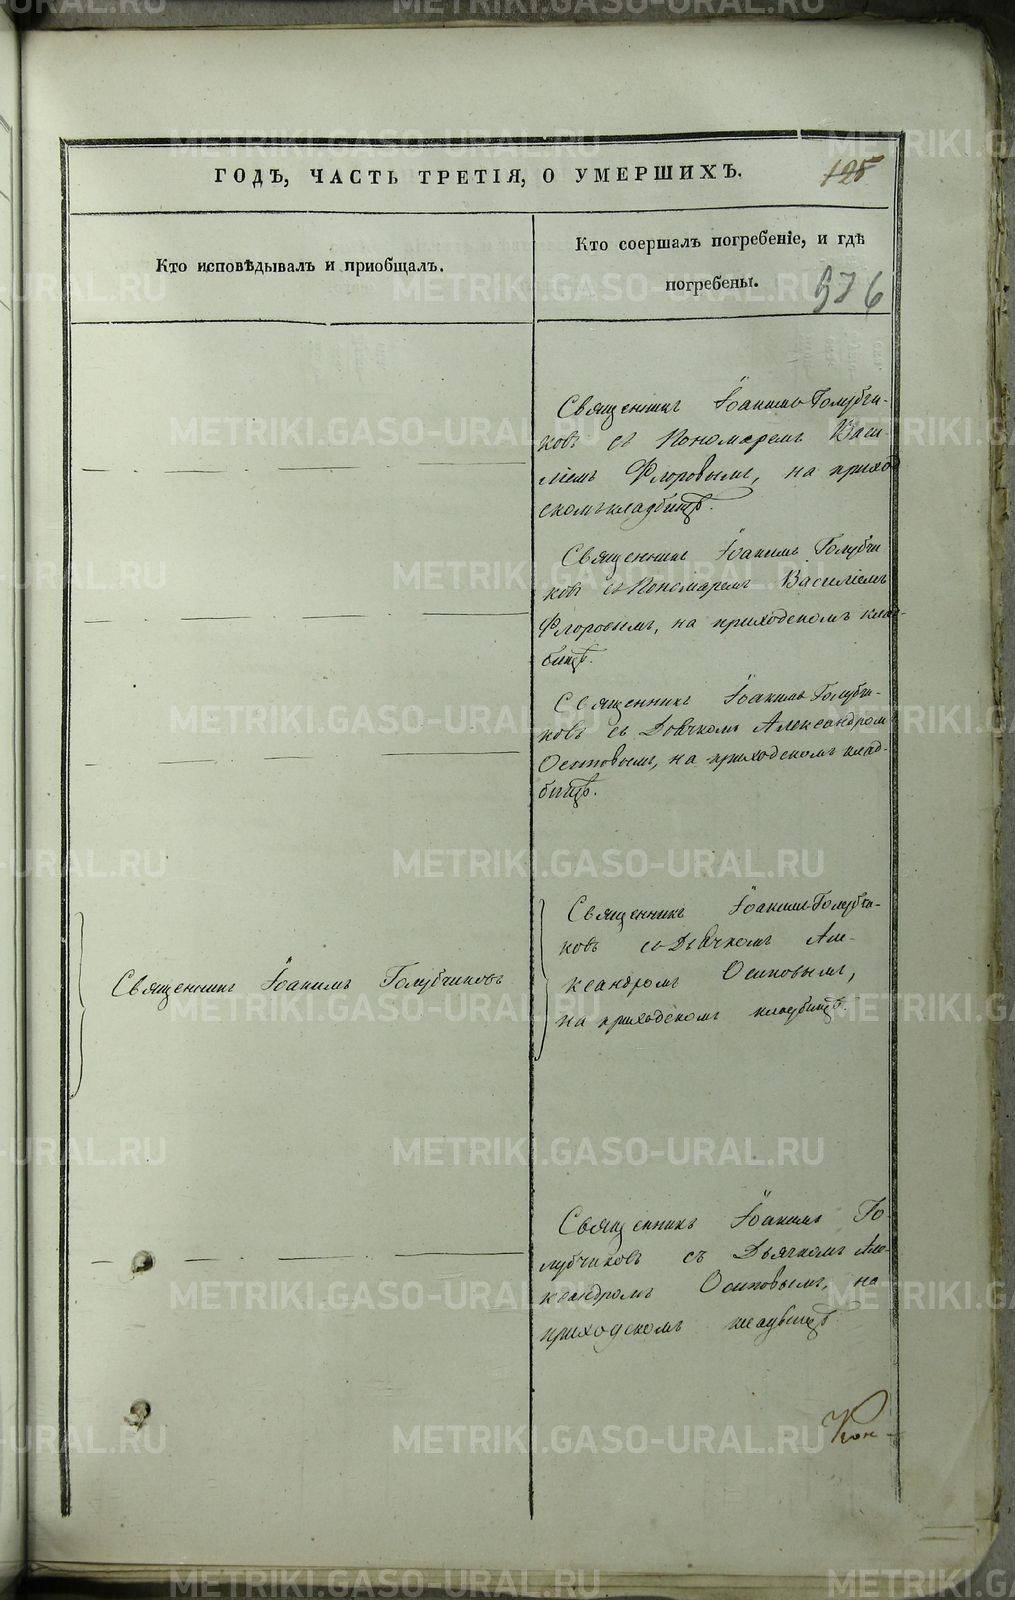 ГОДЪ, ЧАСТЬ ТРЕТІЯ, О УМЕРШИХЪ.
125
Кто исповѣдывалъ и приобщалъ.
Кто соершалъ погребеніе, и гдѣ
погребены.
976
Священникъ Іоакимъ Голубчи-
ковъ съ Пономаремъ Васи-
ліемъ Флоровымъ, на приход
скомъ кладбищѣ.
Священникъ Іоакимъ Голубчи
ковъ съ Пономаремъ Василіемъ
Флоровымъ, на приходскомъ клад-
бищѣ.
Священникъ Іоакимъ Голубчи-
ковъ съ Дьячкомъ Александромъ
Осиповымъ, на приходскомъ клад-
бищѣ.
Священникъ Іоакимъ Голубчиковъ
Священникъ Іоакимъ Голубчи-
ковъ съ Дьячкомъ Але-
ксандромъ Осиповымъ,
на приходскомъ кладбищѣ.
Священникъ Іоакимъ Го-
лубчиковъ съ Дьячкомъ Але-
ксандромъ Осиповымъ, на
приходскомъ кладбищѣ.
Кон-
METRIKI.GASO-URAL.RU